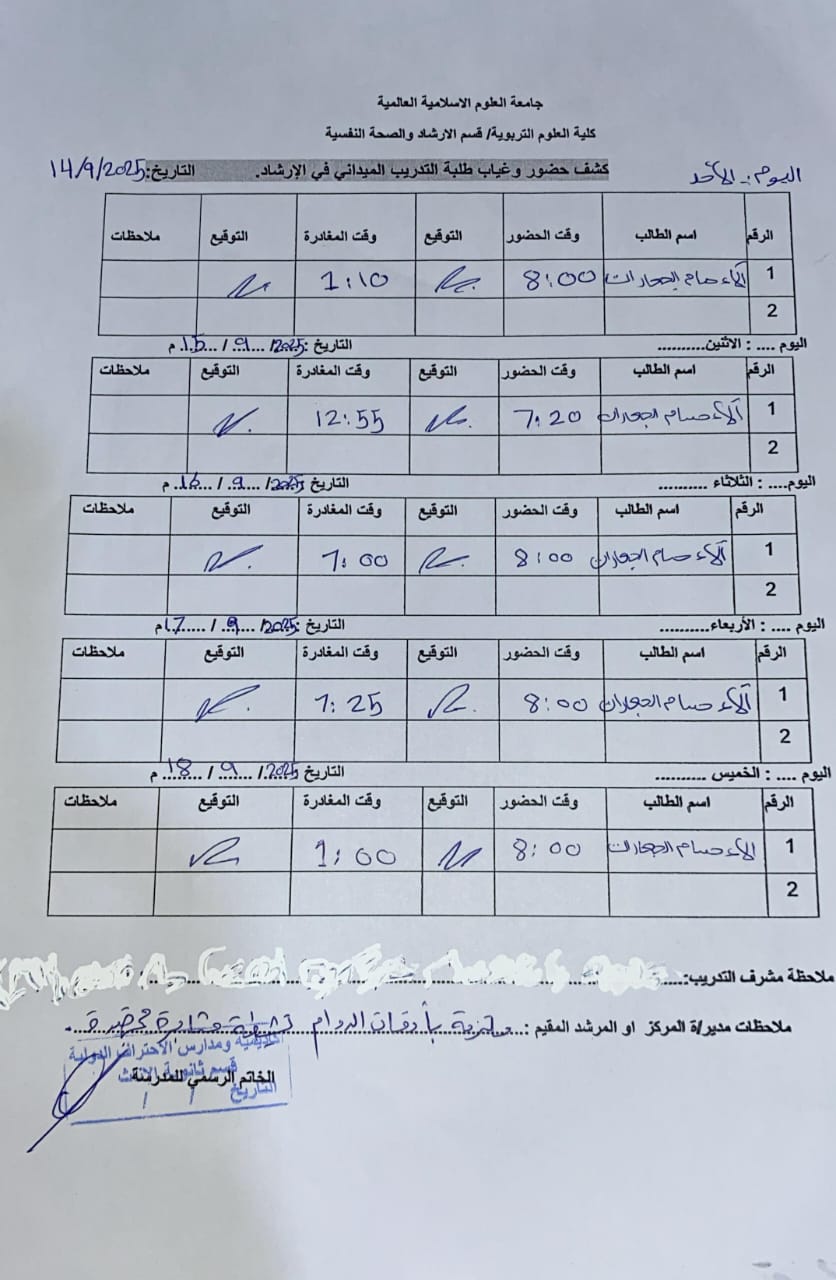 جامعة العلوم الاسلامية العالمية
كلية العلوم التربوية/ قسم الارشاد والصحة النفسية
اليوم:- الأحد كشف حضور وغياب طلبة التدريب الميداني في الإرشاد. التاريخ:14/9/2025
الرقم اسم الطالب وقت الحضور التوقيع وقت المغادرة التوقيع ملاحظات
1 آلاء حسام 8:00 1:10
2
اليوم .... : الاثنين.......... التاريخ :2025/ ...9... / ...15... م
الرقم اسم الطالب وقت الحضور التوقيع وقت المغادرة التوقيع ملاحظات
1 آلاء حسام 7:20 12:55
2
اليوم.... : الثلاثاء .......... التاريخ 2025/ ...9... / ...16... م
الرقم اسم الطالب وقت الحضور التوقيع وقت المغادرة التوقيع ملاحظات
1 آلاء حسام 8:00 1:00
2
اليوم .... : الأربعاء.......... التاريخ :2025/ ...9... / ...17... م
الرقم اسم الطالب وقت الحضور التوقيع وقت المغادرة التوقيع ملاحظات
1 آلاء حسام 8:00 1:25
2
اليوم .... : الخميس .......... التاريخ 2025/ ...9... / ...18... م
الرقم اسم الطالب وقت الحضور التوقيع وقت المغادرة التوقيع ملاحظات
1 آلاء حسام 8:00 1:00
2
ملاحظة مشرف التدريب:
ملاحظات مدير/ة المركز او المرشد المقيم :..ملتزمة بأوقات الدوام نشيطة
ومدارس الاحتراف الدولية
قسم ثانوية
الخاتم الرسمي للمدرسة
التاريخ / /